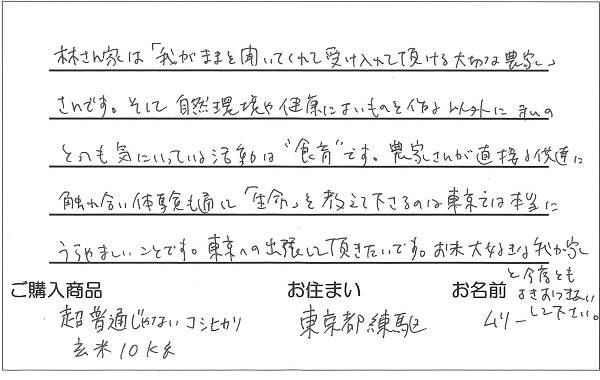 林さん家は「我がままを聞いてくれて受け入れて頂ける大切な農家」
さんです。そして自然環境や健康によいものを作る以外に私の
とっても気にいっている活動は"食育"です。農家さんが直接子供達に
触れ合い体験も通して「生命」を教えて下さるのは東京では本当に
うらやましいことです。東京への出張して頂きたいです。お米大好きな我が家
と今後とも
よきおつきあい
して下さい。
ご購入商品
お住まい
お名前
超普通じゃないコシヒカリ
玄米10Kg
東京都練馬区
ムリー